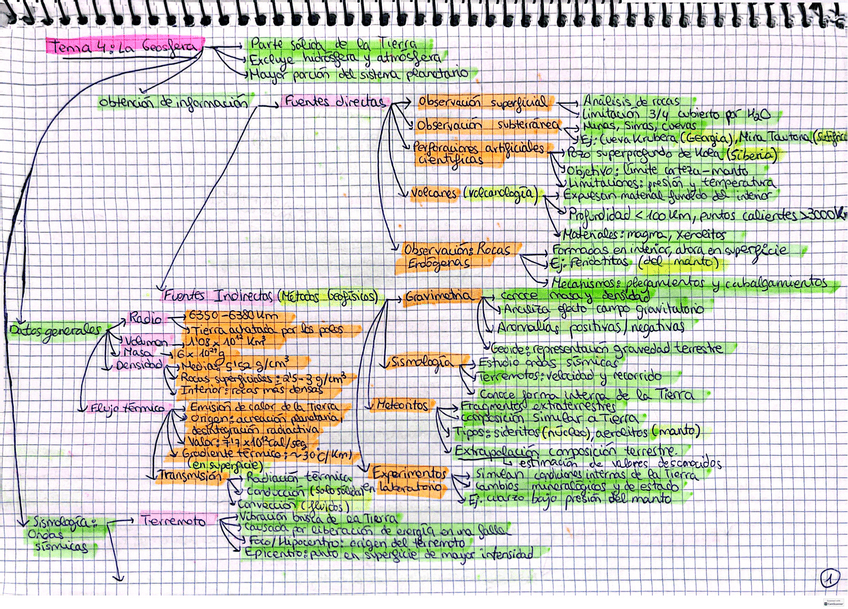 Tema 4: La Geosfera
Parte sólida de la Tierra
Excluye hidrosfera y atmósfera
Mayor porción del sistema planetario
Obtención de información
Fuentes directas
Observación superficial
Análisis de rocas
Limitación 3/4 cubierto por H2O
Observación subterránea
Minas, simas, cuevas
Ej: Cueva Krubera (Georgia), Mina Tautona
Perforaciones artificiales
científicas
Pozo superprofundo de Kola (Siberia)
Objetivo: límite corteza-manto
Limitaciones: presión y temperatura
Volcanes (volcanología)
Expulsan material fundido del interior
Profundidad < 100 Km, puntos calientes >3000K
Materiales: magma, xenolitos
Observación: Rocas
Endógenas
Formadas en interior, ahora en superficie
Ej: Peridotitas (del manto)
Mecanismos: plegamientos y cabalgamientos
Fuentes Indirectas (Métodos Geofísicos)
Gravimetría
conoce masa y densidad
Analiza efecto campo gravitatorio
Anomalías positivas/negativas
Geoide: representación gravedad terrestre
Sismología
Estudio ondas sísmicas
Terremotos: velocidad y recorrido
Conoce forma interna de la Tierra
Meteoritos
Fragmentos extraterrestres
Composición similar a Tierra
Tipos: sideritos (núcleo), aerolitos (manto)
Extrapolación composición terrestre.
estimación de valores desconocidos
Experimentos
en laboratorio
Simulan condiciones internas de la Tierra
Cambios mineralógicos y de estado
Ej: cuarzo bajo presión del manto
Datos generales
Radio
6350-6380 Km
Tierra achatada por los polos
Volumen
Masa
Densidad
Media: 5'52 g/cm3
Rocas superficiales: 2'5-3 g/cm3
Interior: rocas más densas
Flujo térmico
Emisión de calor de la Tierra
Origen: acreción planetaria
desintegración radiactiva
Gradiente térmico: ~30°C/Km)
(en superficie)
Transmisión
Radiación térmica
Conducción
Convección (fluidos)
Sismología:
Ondas
sísmicas
Terremoto
Vibración brusca de la Tierra
Causada por liberación de energía en una falla
Foco/Hipocentro: origen del terremoto
Epicentro: punto en superficie de mayor intensidad
1